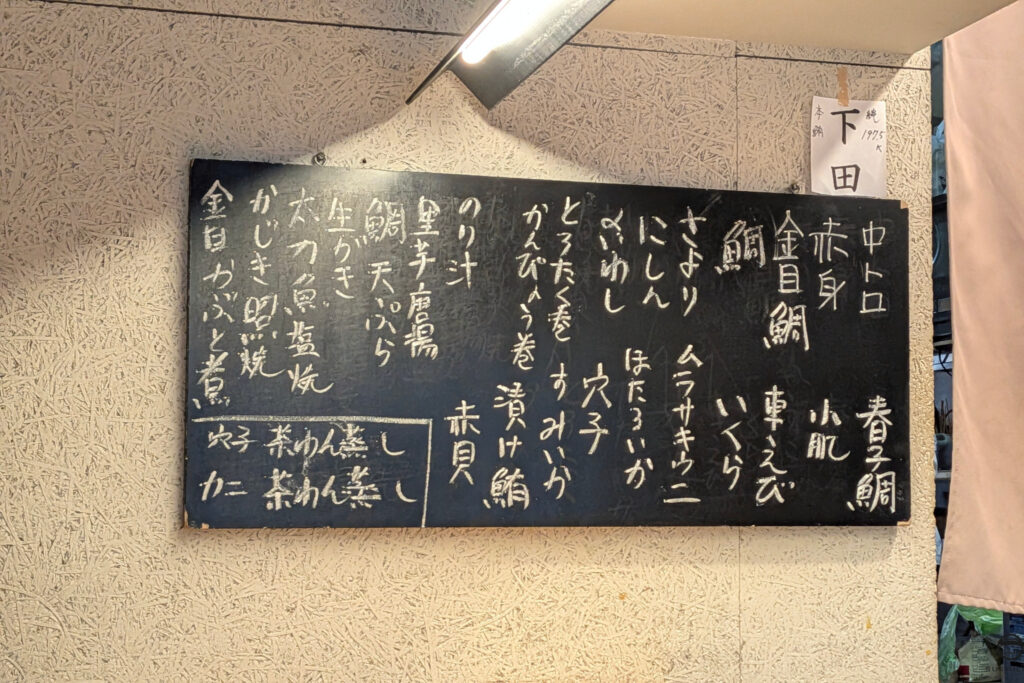 下田
本鮪
197.5
K
中トロ
赤身
金目鯛
鯛
さより
にしん
〆いわし
とろたく巻
かんぴょう巻
のり汁
里芋唐揚
鯛天ぷら
生がき
太刀魚塩焼
かじき照焼
金目かぶと煮
春子鯛
小肌
車えび
いくら
ムラサキウニ
ほたるいか
穴子
すみいか
漬け鮪
赤貝
穴子 茶わん蒸し
カニ 茶わん蒸し